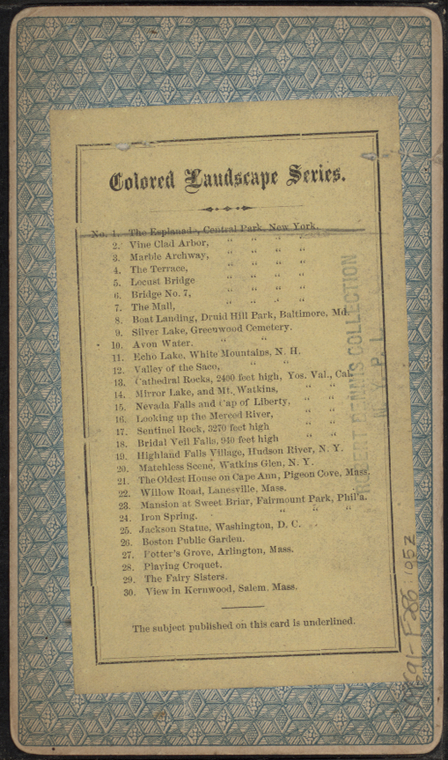 Colored Landscape Series.
No. 1. The Esplanade, Central Park, New York.
2. Vine Clad Arbor, " " " "
3. Marble Archway, " " " "
4. The Terrace, " " " "
5. Locust Bridge " " " "
6. Bridge No. 7, " " " "
7. The Mall, " " " "
8. Boat Landing, Druid Hill Park, Baltimore, Md.
9. Silver Lake, Greenwood Cemetery.
10. Avon Water. " "
11. Echo Lake, White Mountains, N. H.
12. Valley of the Saco, " "
13. Cathedral Rocks, 2400 feet high, Yos. Val., Cal.
14. Mirror Lake, and Mt. Watkins, " "
15. Nevada Falls and Cap of Liberty, " "
16. Looking up the Merced River, " "
17. Sentinel Rock, 3270 feet high " "
18. Bridal Veil Falls, 940 feet high " "
19. Highland Falls Village, Hudson River, N. Y.
20. Matchless Scene, Watkins Glen, N. Y.
21. The Oldest House on Cape Ann, Pigeon Cove, Mass.
22. Willow Road, Lanesville, Mass.
23. Mansion at Sweet Briar, Fairmount Park, Phil'a.
24. Iron Spring. " " "
25. Jackson Statue, Washington, D. C.
26. Boston Public Garden.
27. Potter's Grove, Arlington, Mass.
28. Playing Croquet.
29. The Fairy Sisters.
30. View in Kernwood, Salem, Mass.
The subject published on this card is underlined.
ROBERT DENNIS COLLECTION
P. L.
91-F286:1052